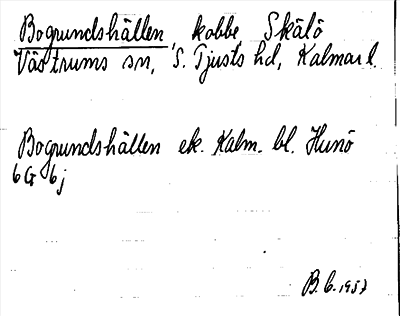 Bogrundshällen, kobbe Skälö
Västrums sn, S. Tjusts hd, Kalmar l.
Bogrundshällen ek. Kalm. bl. Hunö
6G 6j
B.C. 1957